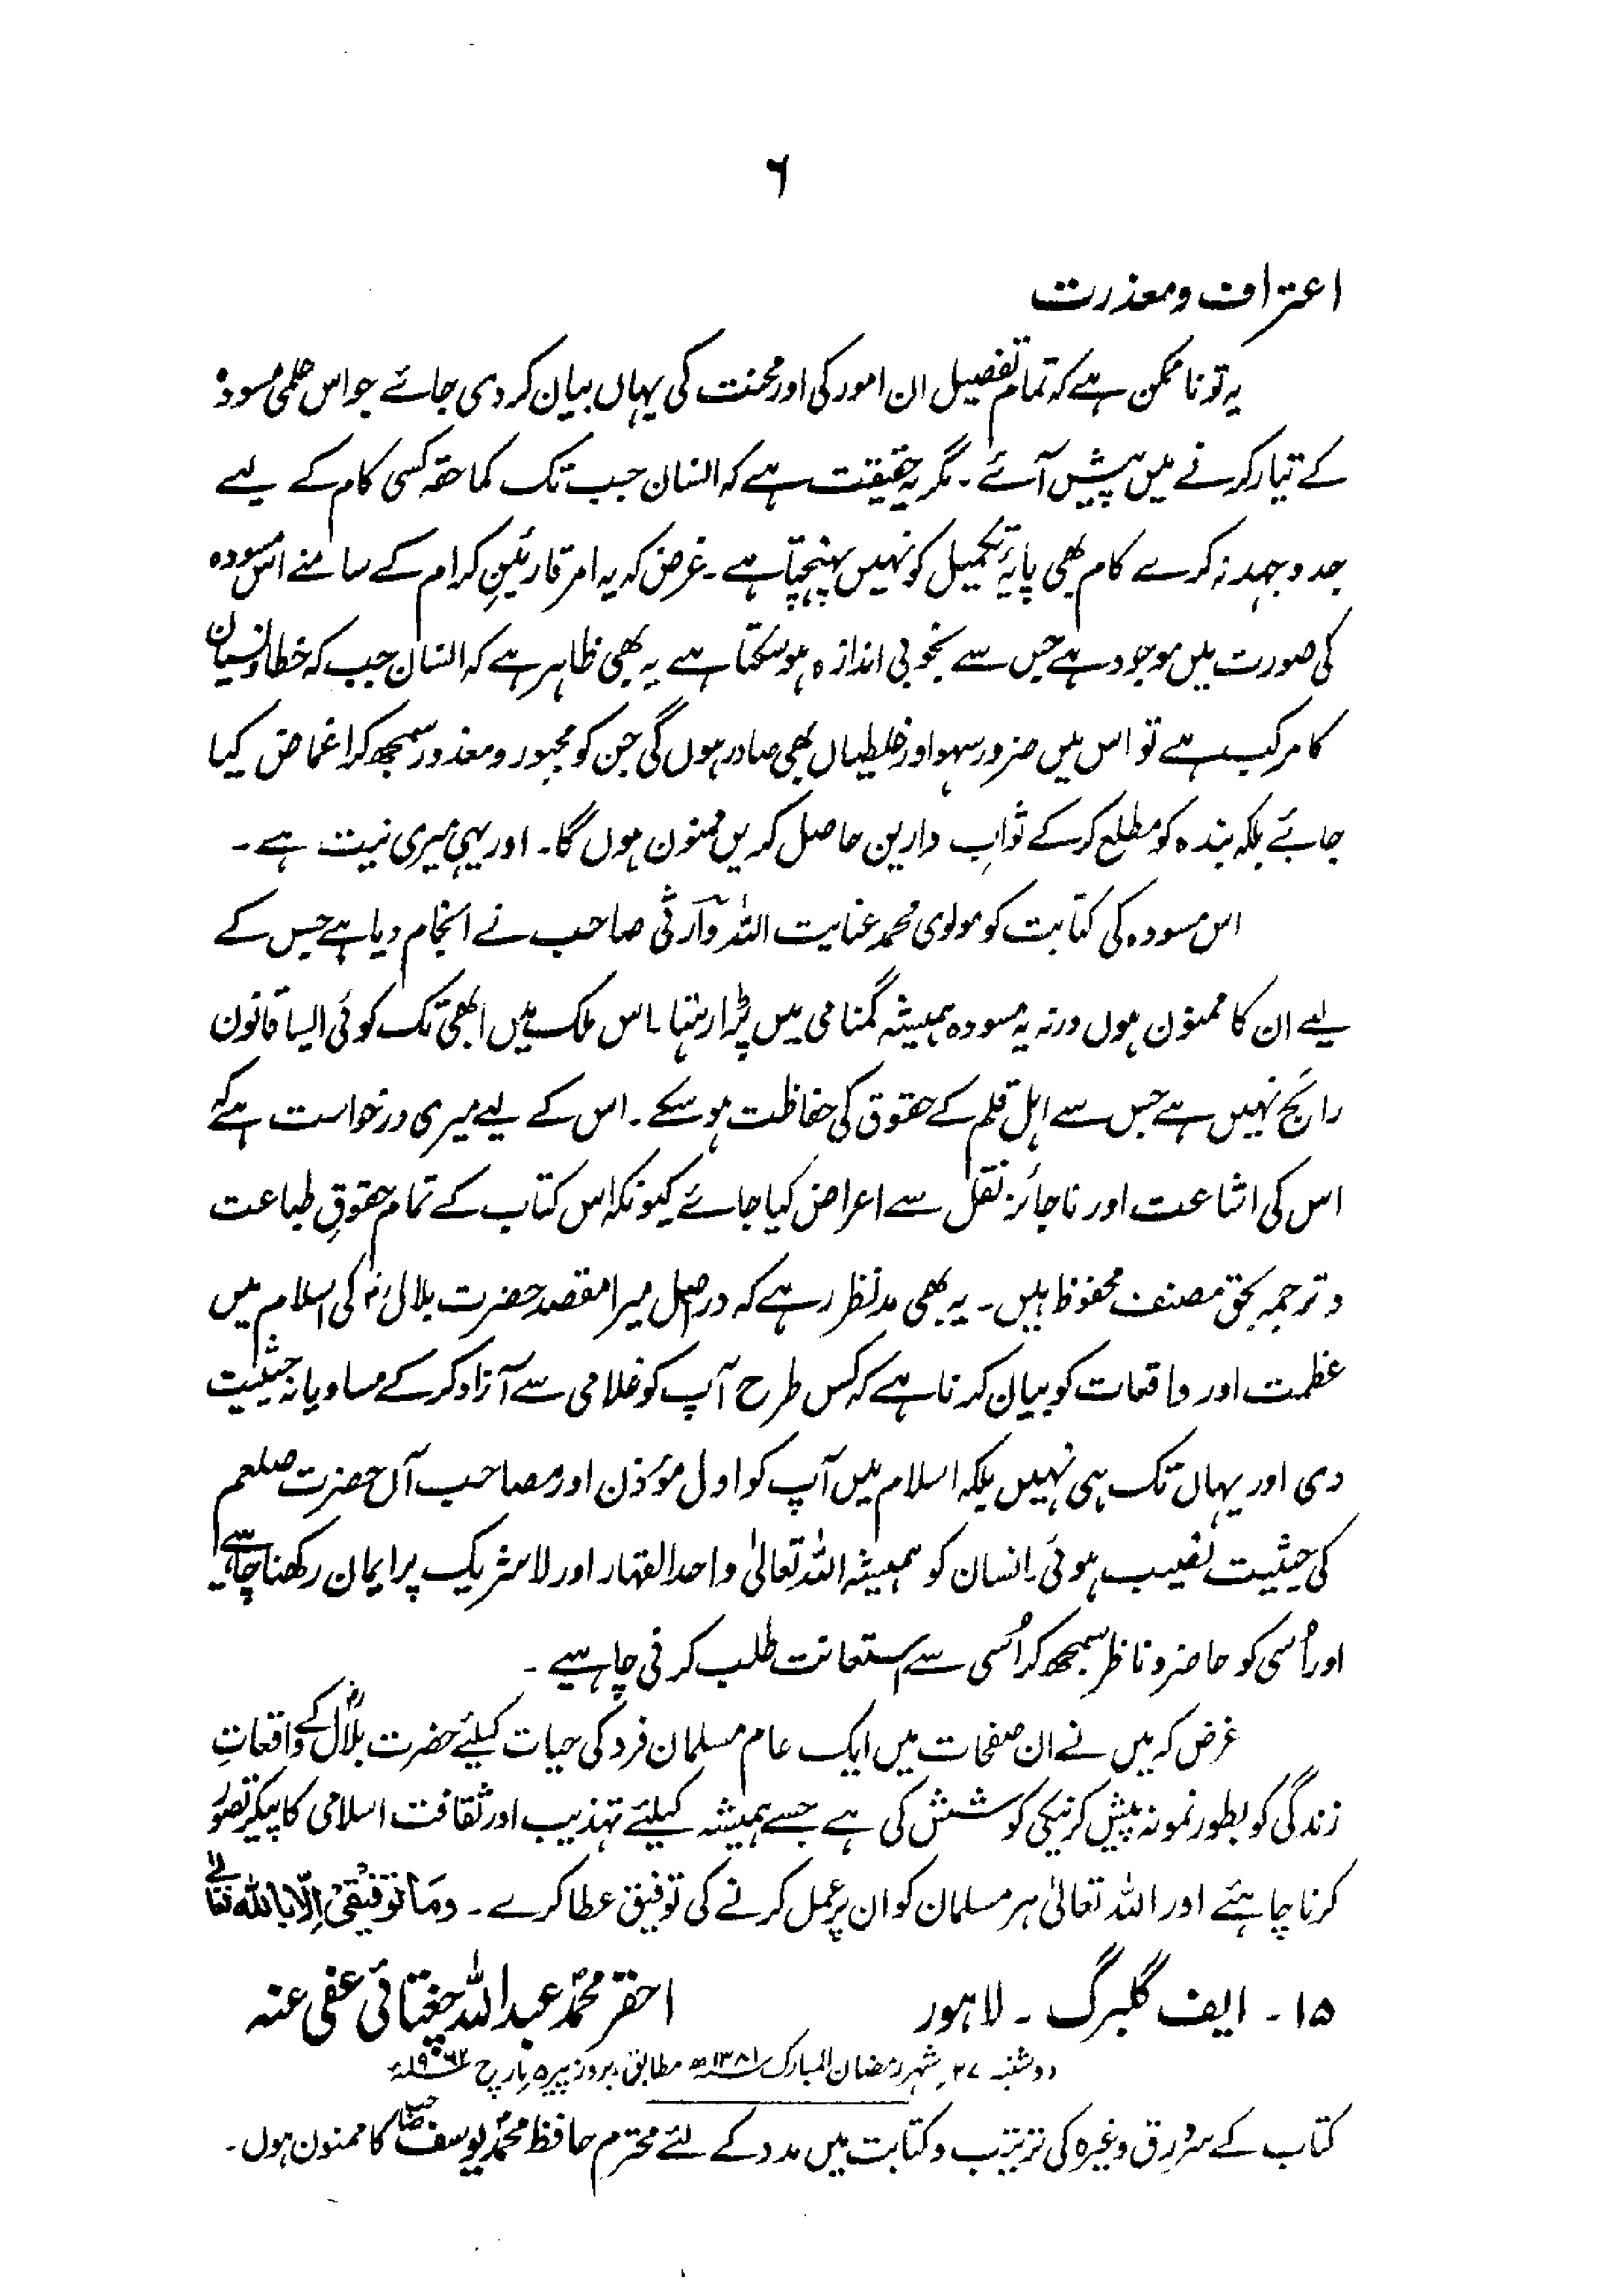 ٦
اعتراف و معذرت
یہ تو ناممکن ہے کہ تمام تفصیل ان امور کی اور محنت کی یہاں بیان کر دی جائے جو اس علمی مسودہ
کے تیار کرنے میں پیش آئے۔ مگر یہ حقیقت ہے کہ انسان جب تک کما حقہ کسی کام کے لیے
جد و جہد نہ کرے کام بھی پایۂ تکمیل کو نہیں پہنچتا ہے۔ غرض کہ یہ امر قارئینِ کرام کے سامنے اس مسودہ
کی صورت میں موجود ہے جس سے بخوبی اندازہ ہو سکتا ہے یہ بھی ظاہر ہے کہ انسان جب کہ خطا و نسیان
کا مرکب ہے تو اس میں ضرور سہو اور غلطیاں بھی صادر ہوں گی جن کو مجبور و معذور سمجھ کر اغماض کیا
جائے بلکہ بندہ کو مطلع کر کے ثوابِ دارین حاصل کریں ممنون ہوں گا۔ اور یہی میری نیت ہے۔
اس مسودہ کی کتابت کو مولوی محمد عنایت اللہ وارثی صاحب نے انجام دیا ہے جس کے
لیے ان کا ممنون ہوں ورنہ یہ مسودہ ہمیشہ گمنامی میں پڑا رہتا۔ اس ملک میں ابھی تک کوئی ایسا قانون
رائج نہیں ہے جس سے اہل قلم کے حقوق کی حفاظت ہو سکے۔ اس کے لیے میری درخواست ہے کہ
اس کی اشاعت اور ناجائز نقل سے اعراض کیا جائے کیونکہ اس کتاب کے تمام حقوقِ طباعت
و ترجمہ بحق مصنف محفوظ ہیں۔ یہ بھی مدنظر رہے کہ دراصل میرا مقصد حضرت بلالؓ کی اسلام میں
عظمت اور واقعات کو بیان کرنا ہے کہ کس طرح آپ کو غلامی سے آزاد کر کے مساویانہ حیثیت
دی اور یہاں تک ہی نہیں بلکہ اسلام میں آپ کو اول مؤذن اور مصاحب آں حضرت صلعم
کی حیثیت نصیب ہوئی۔ انسان کو ہمیشہ اللہ تعالیٰ واحد القہار اور لاشریک پر ایمان رکھنا چاہیے
اور اُسی کو حاضر و ناظر سمجھ کر اُسی سے استعانت طلب کرنی چاہیے۔
غرض کہ میں نے ان صفحات میں ایک عام مسلمان فرد کی حیات کیلئے حضرت بلالؓ کے واقعاتِ
زندگی کو بطور نمونہ پیش کرنیکی کوشش کی ہے جسے ہمیشہ کیلئے تہذیب اور ثقافت اسلامی کا پیکر تصور
کرنا چاہئے اور اللہ تعالیٰ ہر مسلمان کو ان پر عمل کرنے کی توفیق عطا کرے۔ وَمَا تَوْفِیْقِیْ اِلَّا بِاللہ تعالےٰ
۱۵۔ ایف گلبرگ۔ لاہور احقر محمد عبداللہ چغتائی عفی عنہ
دوشنبہ ۲۷ شہر رمضان المبارک ۱۳۸۱ھ مطابق بروز پیر ۵ مارچ ۱۹۶۲ء
کتاب کے سرورق وغیرہ کی ترتیب و کتابت میں مدد کے لئے محترم حافظ محمد یوسف صاحب کا ممنون ہوں۔